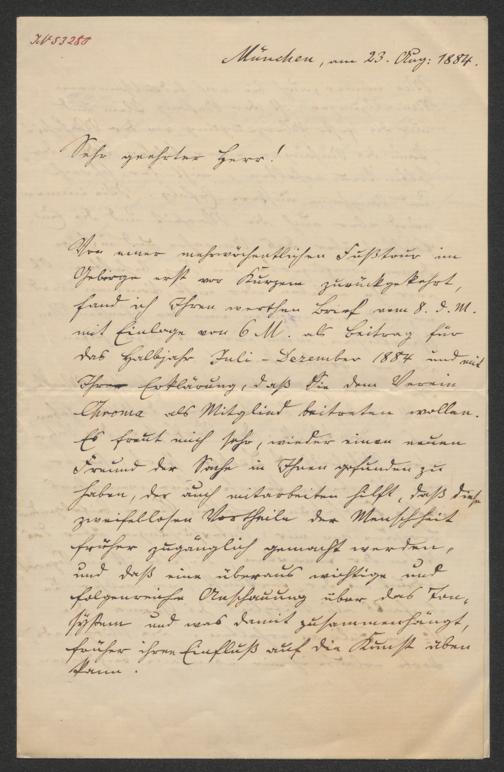 IN 53280
München, am 23. Aug: 1884.
Sehr geehrter Herr!
Von einer mehrwöchentlichen Fußtour im
Gebirge erst vor Kurzem zurückgekehrt,
fand ich Ihren werthen Brief vom 8. d. M.
mit Einlage von 6 M. als Beitrag für
das Halbjahr Juli – Dezember 1884 und mit
Ihrer Erklärung, daß Sie dem Verein
Chroma als Mitglied beitreten wollen.
Es freut mich sehr, wieder einen neuen
Freund der Sache in Ihnen gefunden zu
haben, der auch mitarbeiten hilft, daß diese
zweifellosen Vortheile der Menschheit
früher zugänglich gemacht werden,
und daß eine überaus wichtige und
folgenreiche Anschauung über das Ton-
system und was damit zusammenhängt,
früher ihren Einfluß auf die Kunst üben
kann.